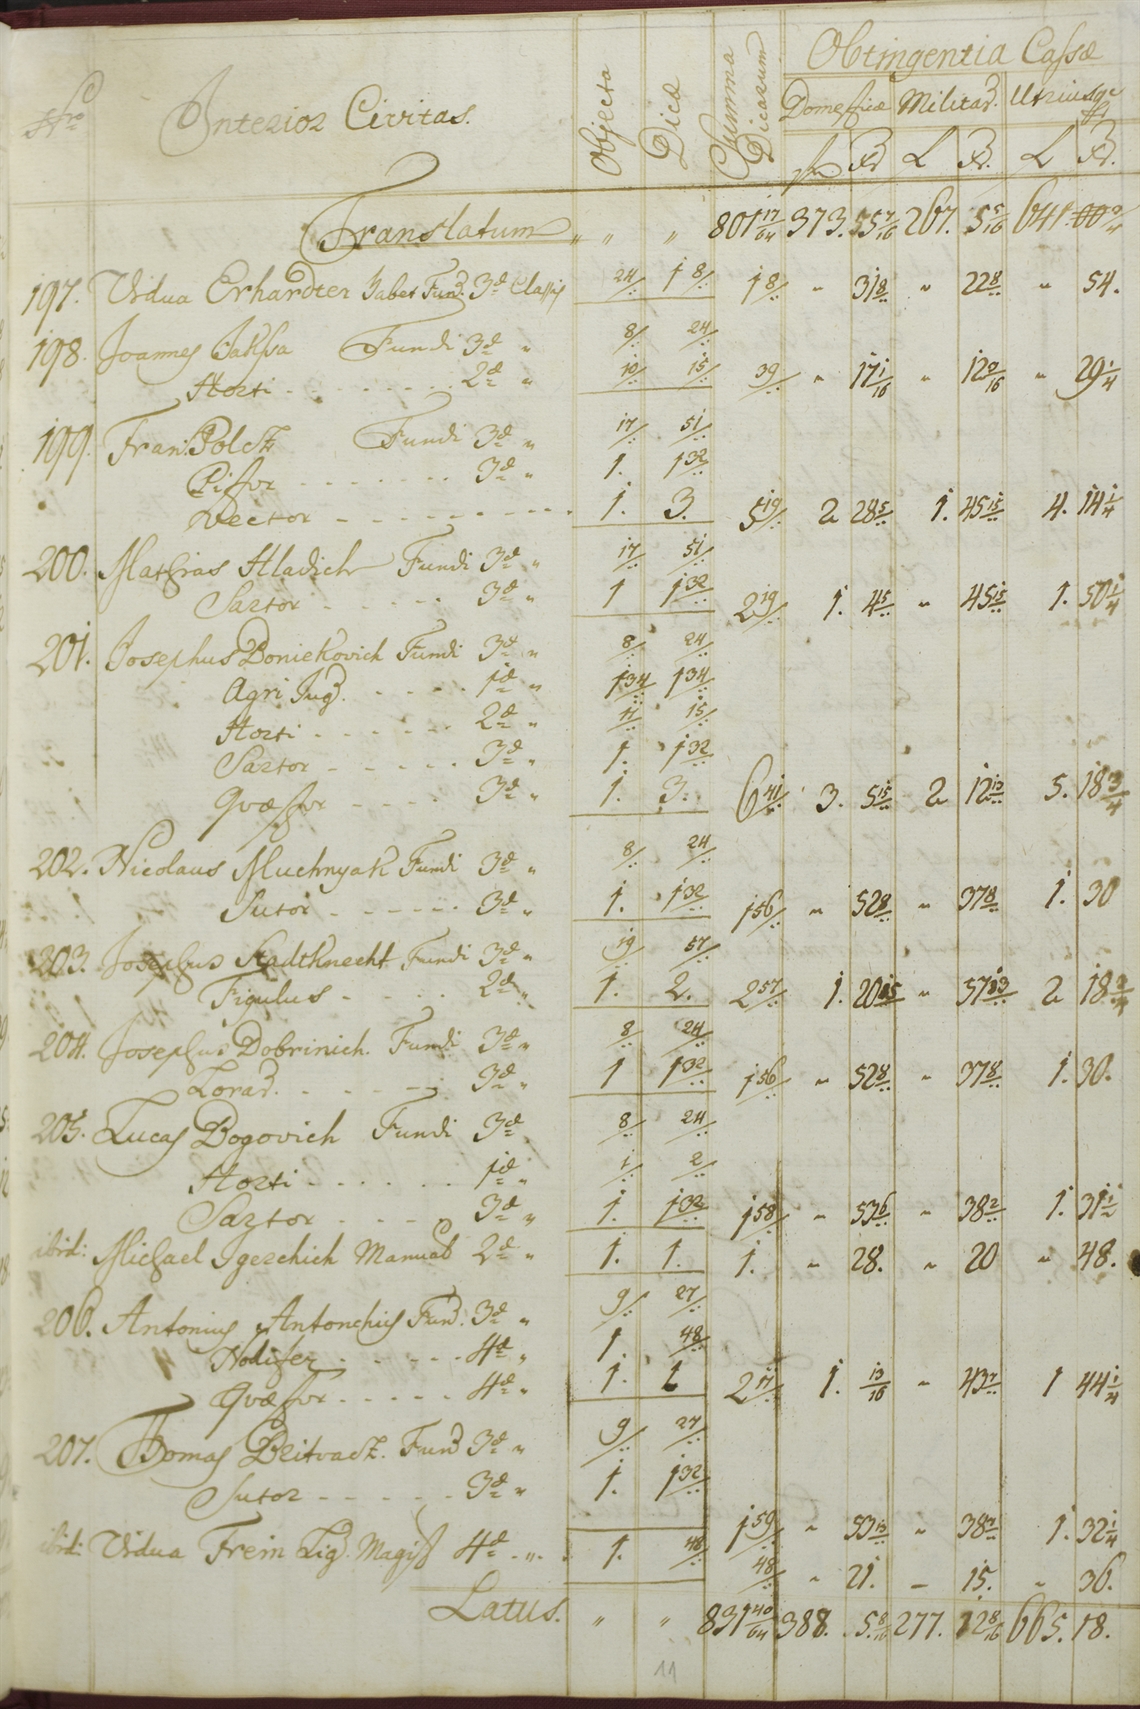 Obtingentia Cassæ
Nro Interior Civitas. Objecta Dicæ Summa Dicarum Domesticæ Militar. Utriusqe
fl Xr L Xr. L Xr.
Translatum " " " 801 17/64 373. 55 7/16 267. 5 5/16 641.
197. Vidua Erhardter Zaber Fund. 3æ Classis 24/.. 1 8/.. 1 8/.. " 31 8/.. " 22 8/.. " 54.
198. Joannes Jaksa Fundi 3æ " 8/.. 24/..
Horti - - - - - - - 2æ " 10/.. 15/.. 39/.. " 17 1/16 " 12 3/16 " 29 1/4
199. Fran. Polcz Fundi 3æ " 17/.. 51/..
Pistor - - - - - - - 3æ " 1. 1 32/..
Vector - - - - - - - - - - 1. 3. 5 19/.. 2 28 5/.. 1. 45 15/.. 4. 14 1/4
200. Mathias Hladich Fundi 3æ " 17/.. 51/..
Sartor - - - - - - 3æ " 1 1 32/.. 2 19/.. 1. 4 5/.. " 45 15/.. 1. 50 1/4
201. Josephus Boniekovich Fundi 3æ " 8/.. 24/..
Agri Jug. - - - - - 1æ " 1 34/.. 1 34/..
Horti - - - - - - 2æ " 11/.. 15/..
Sartor - - - - - 3æ " 1. 1 32/..
Quæstor - - - - 3æ " 1. 3. 6 41/.. 3. 5 15/.. 2 12 13/.. 5. 18 3/4
202. Nicolaus Muchnyak Fundi 3æ " 8/.. 24/..
Sutor - - - - - - 3æ " 1. 1 32/.. 1 56/.. " 52 8/.. " 37 8/.. 1. 30
203. Josephus Stadtknecht Fundi 3æ " 19/.. 57/..
Figulus - - - - - 2æ " 1. 2. 2 57/.. 1. 20 15/.. " 57 13/.. 2 18 3/4
204. Josephus Dobrinich. Fundi 3æ " 8/.. 24/..
Lorar. - - - - - - 3æ " 1 1 32/.. 1 56/.. " 52 8/.. " 37 8/.. 1. 30.
205. Lucas Bogovich Fundi 3æ 8/.. 24/..
Horti - - - - - - 1æ " 1/.. 2/..
Sartor - - - - - 3æ " 1. 1 32/.. 1 58/.. " 53 6/.. " 38 2/.. 1. 31 1/2
ibid: Michael Igerchich Manual 2æ " 1. 1. 1. " 28. " 20 " 48.
206. Antonius Antonchich Fund. 3æ " 9/.. 27/..
Nodifex - - - - - 4æ " 1. 48/..
Quæstor - - - - - 4æ " 1. 1 2 17/.. 1. 13/16 " 43 7/.. 1 44 1/4
207. Thomas Beitvacz. Fund 3æ " 9/.. 27/..
Sutor - - - - - - 3æ " 1. 1 32/.. 1 59/.. " 53 13/.. " 38 7/.. 1. 32 1/4
ibid: Vidua Frein Lig. Magist 4æ - " - 1. 48/.. 48/.. " 21. - 15. " 36.
Latus. " " 831 40/64 388. 5 8/16 277. 12 8/16 665. 18.
11